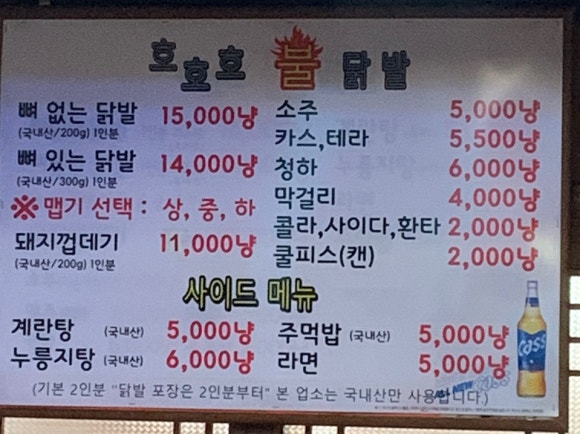 호호호 불 닭발
뼈 없는 닭발 15,000냥
(국내산/200g) 1인분
뼈 있는 닭발 14,000냥
(국내산/300g) 1인분
※ 맵기 선택 : 상, 중, 하
돼지껍데기 11,000냥
(국내산/200g) 1인분
소주 5,000냥
카스,테라 5,500냥
청하 6,000냥
막걸리 4,000냥
콜라,사이다,환타 2,000냥
쿨피스(캔) 2,000냥
사이드 메뉴
계란탕 (국내산) 5,000냥
누룽지탕 (국내산) 6,000냥
주먹밥 (국내산) 5,000냥
라면 5,000냥
Cass
NEW
(기본 2인분 "닭발 포장은 2인분부터" 본 업소는 국내산만 사용합니다.)